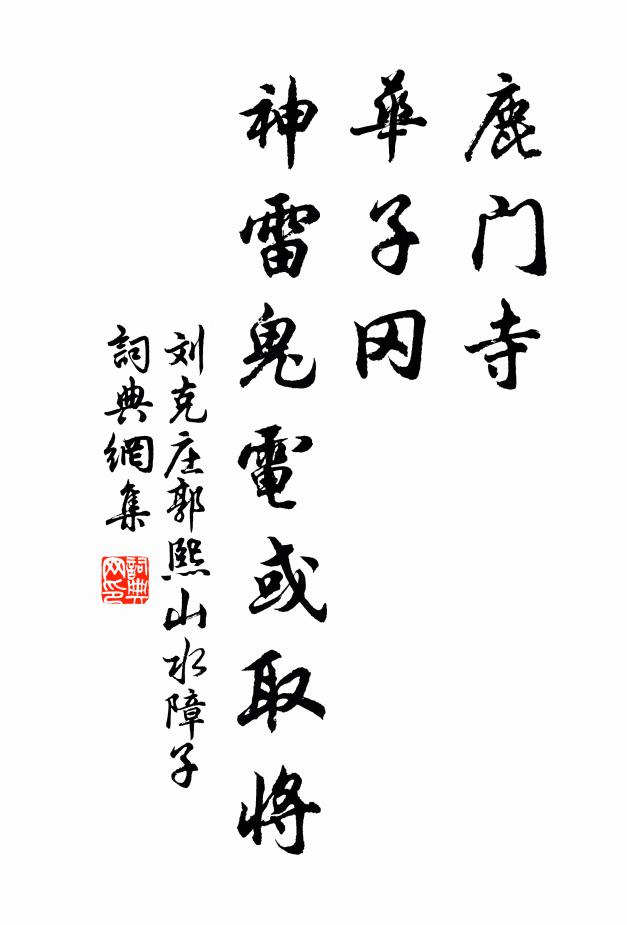 鹿门寺
華子冈
神雷鬼電或取將
刘克庄郭熙山水障子
詞典網集
詞典
网印